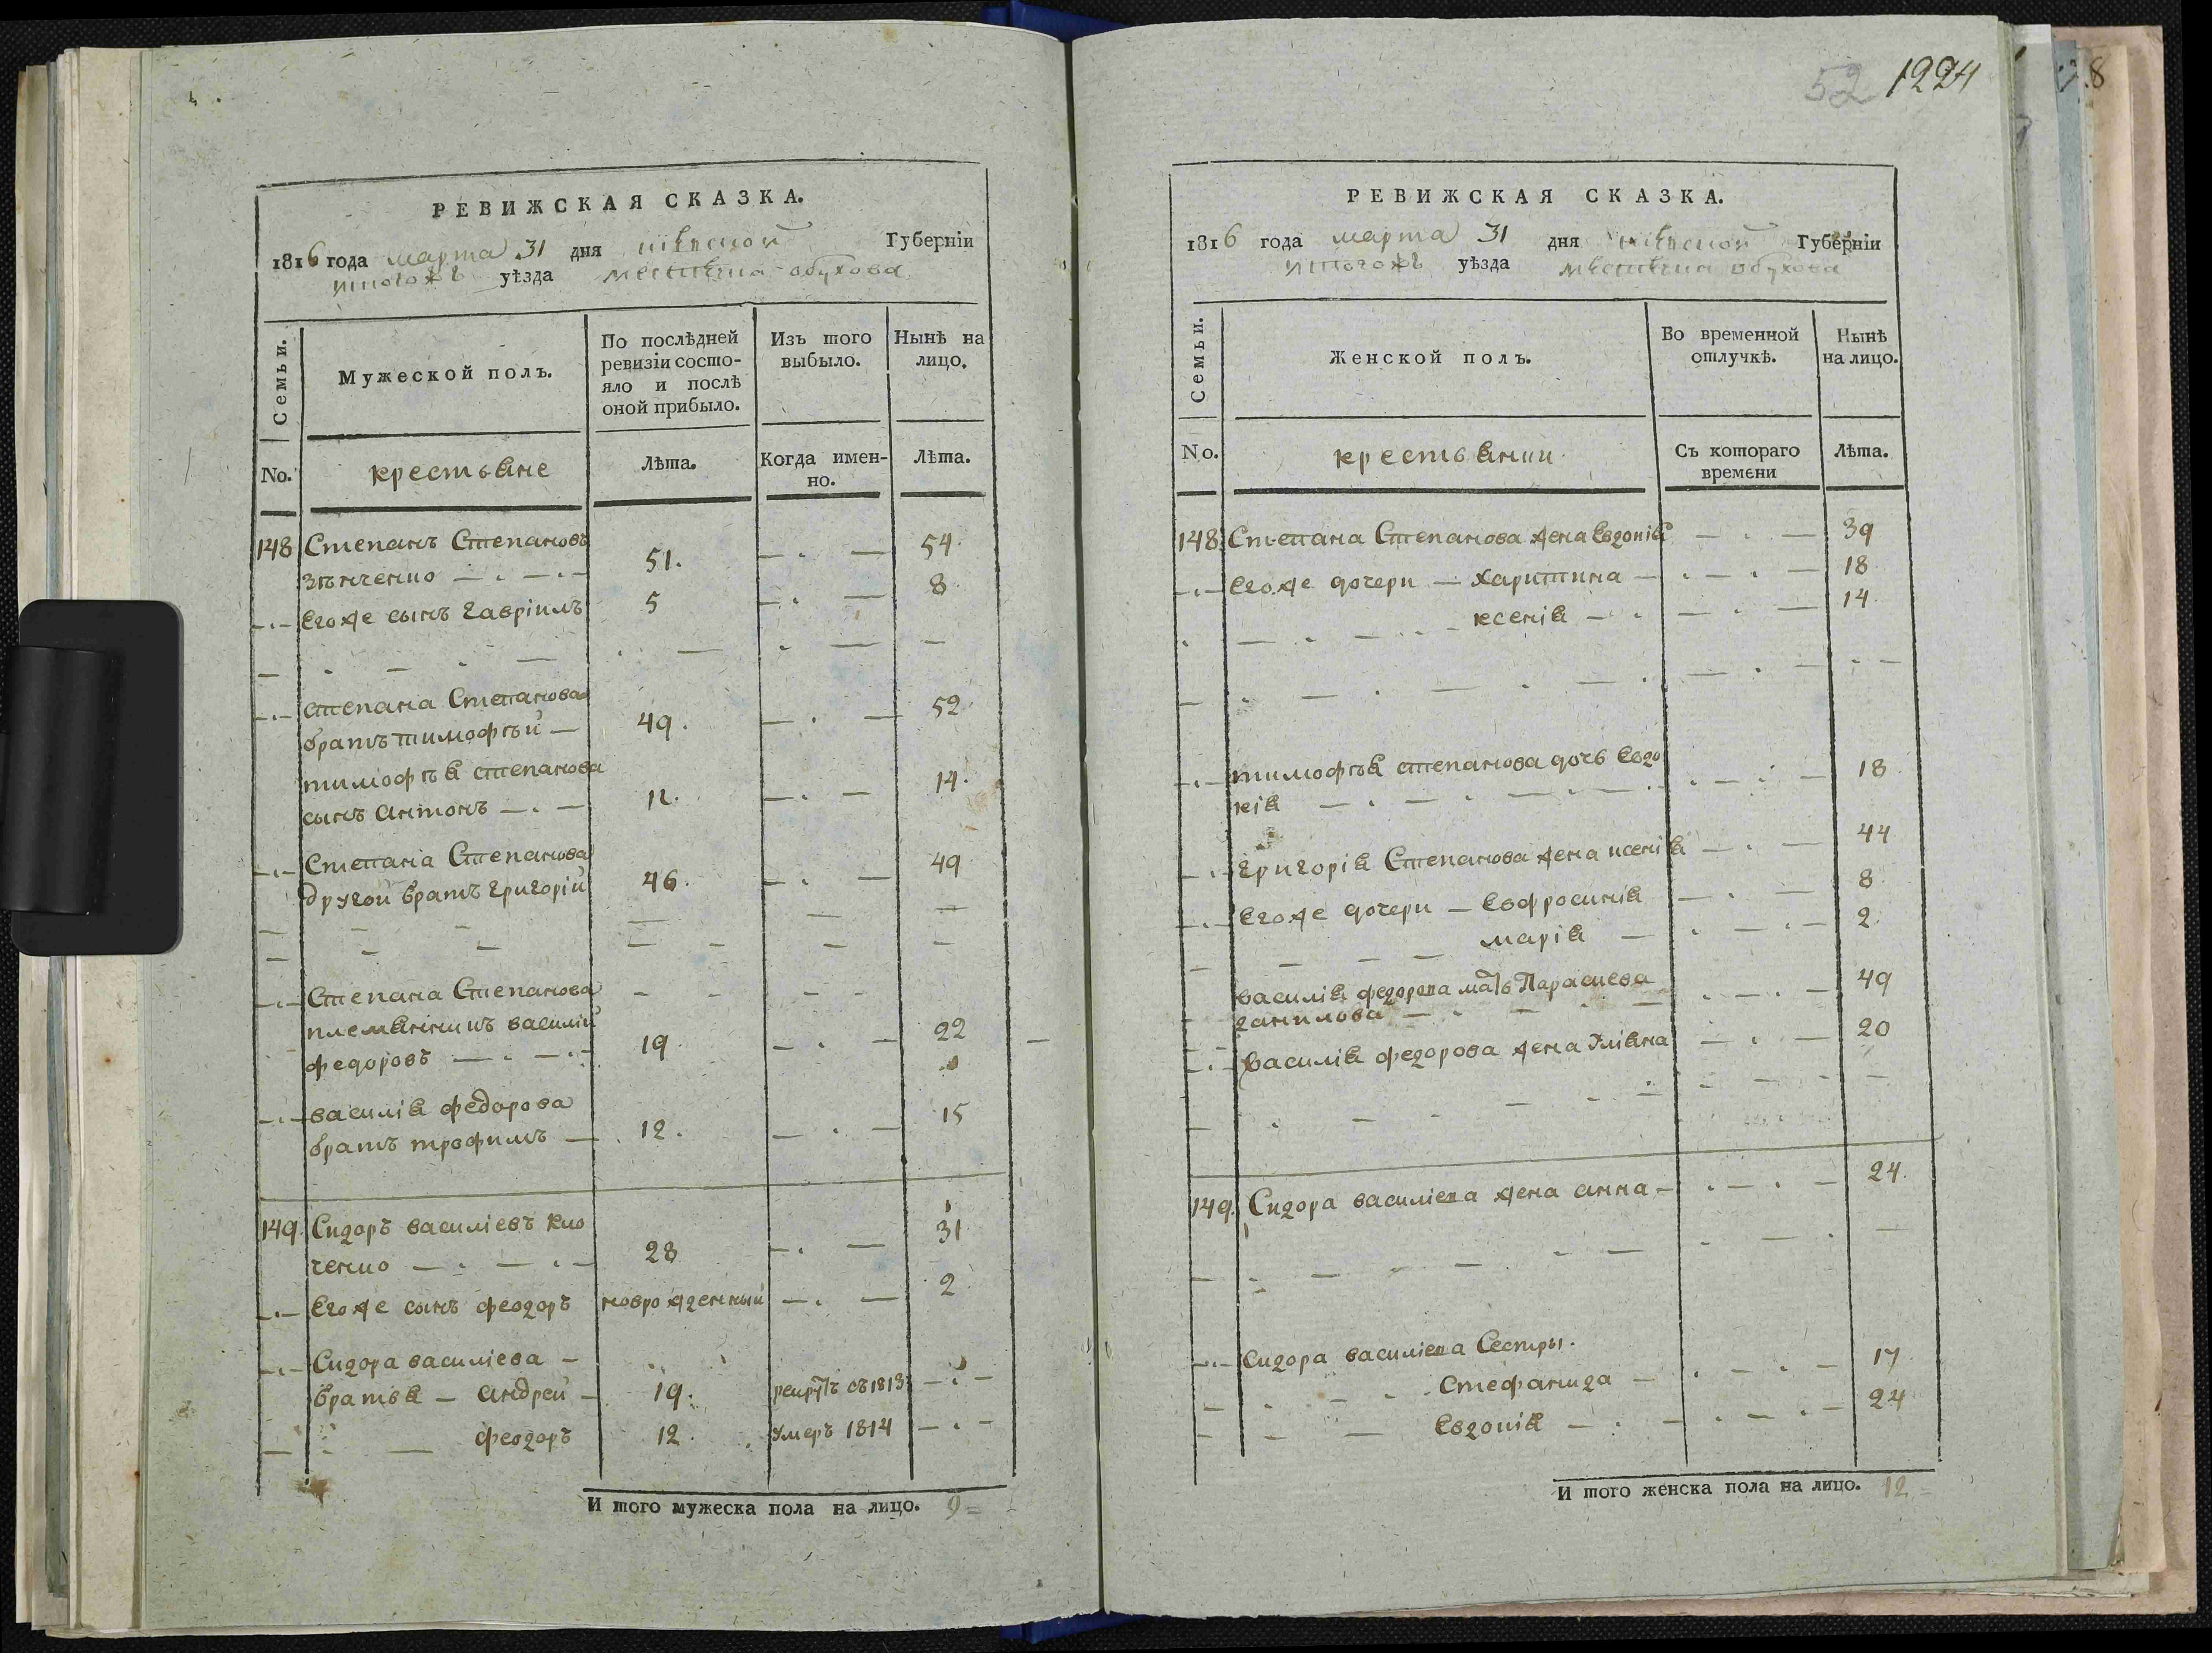 РЕВИЖСКАЯ СКАЗКА.
1816 года марта 31 дня кіевской Губерніи
тогожъ уѣзда местечка обухова
Семьи.
Мужеской полъ.
По послѣдней ревизіи состо-
яло и послѣ
оной прибыло.
Изъ того
выбыло.
Нынѣ на
лицо.
No.
крестьяне
Лѣта.
Когда имен-
но.
Лѣта.
148 Степанъ Степановъ
51. 54
Егоже сынъ Гавріилъ 5 8
Степана Степанова
братъ тимофѣй 49. 52
тимофѣя степанова
сынъ антонъ 11. 14.
Степана Степанова
другой братъ григорій 46. 49
Степана Степанова
племянникъ василій
федоровъ 19 22
василія федорова
братъ трофимъ 12. 15
149 Сидоръ василіевъ кло
ченко 28 31
Егоже сынъ феодоръ новрожденный 2
Сидора василіева
братья андрей 19. рекрутъ съ 1813
феодоръ 12. умеръ 1814
И того мужеска пола на лицо. 9
52 1224
РЕВИЖСКАЯ СКАЗКА.
1816 года марта 31 дня кіевской Губерніи
тогожъ уѣзда местечка обухова
Семьи.
Женской полъ.
Во временной
отлучкѣ.
Нынѣ
на лицо.
No.
крестьянки
Съ котораго
времени
Лѣта.
148 Степана Степанова жена Евдокія 39
Егоже дочери Харитина 18
ксенія 14
тимофѣя степанова дочь Евдо
кія 18
григорія Степанова жена ксенія 44
Егоже дочери Евфросинія 8
марія 2
василія федорова мать Параскева
данилова 49
василія федорова жена Уліяна 20
149 Сидора василіева жена анна 24.
Сидора василіева Сестры.
Стефанида 17
Евдокія 24
И того женска пола на лицо. 12